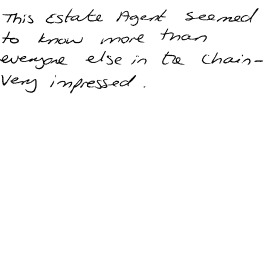 This Estate Agent seemed
to know more than
everyone else in the chain-
Very impressed.